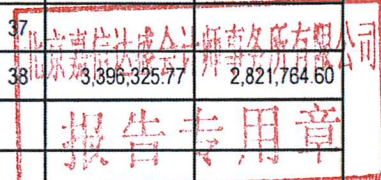 37
北京嘉信达盛会计师事务所有限公司
38 3,396,325.77 2,821,764.60
报告专用章